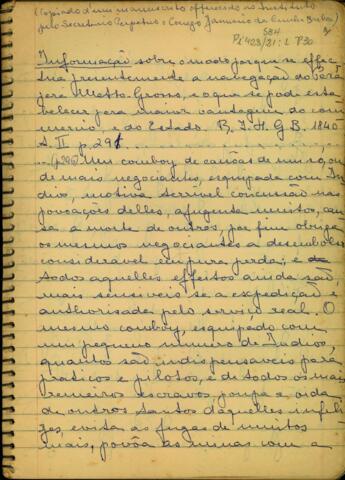 (Copiado d'um manuscripto offerecido ao Instituto
pelo Secretario Perpetuo o Conego Januario da Cunha Barbosa)
584
Pi 423/31: L P30
Informação sobre o modo porque se effec-
tua presentemente a navegação do Pará
para Matto-Grosso, e o que se pode esta-
belecer para maior vantagem do com-
mercio, e do Estado. R. I. H. G. B. 1840
t. II p. 291
... (p. 295) Um comboy de canôas de um só, ou
de mais negociantes, esquipada com In-
dios, motiva terrivel concussão nas
povoações delles, afugenta muitos, cau-
sa a morte de outros, por fim obriga
os mesmos negociantes a desembolso
consideravel em pura perda; e
todos aquelles effeitos ainda são
mais sensiveis se a expedição é
authorisada pelo serviço real. O
mesmo comboy, esquipado com
um pequeno numero de Indios,
quanto são indispensaveis para
praticos e pilotos, e de todos os mais
remeiros escravos, poupa a vida
de outros tantos daquelles infeli-
zes, evita as fugas de muitos
mais, povôa as minas com a